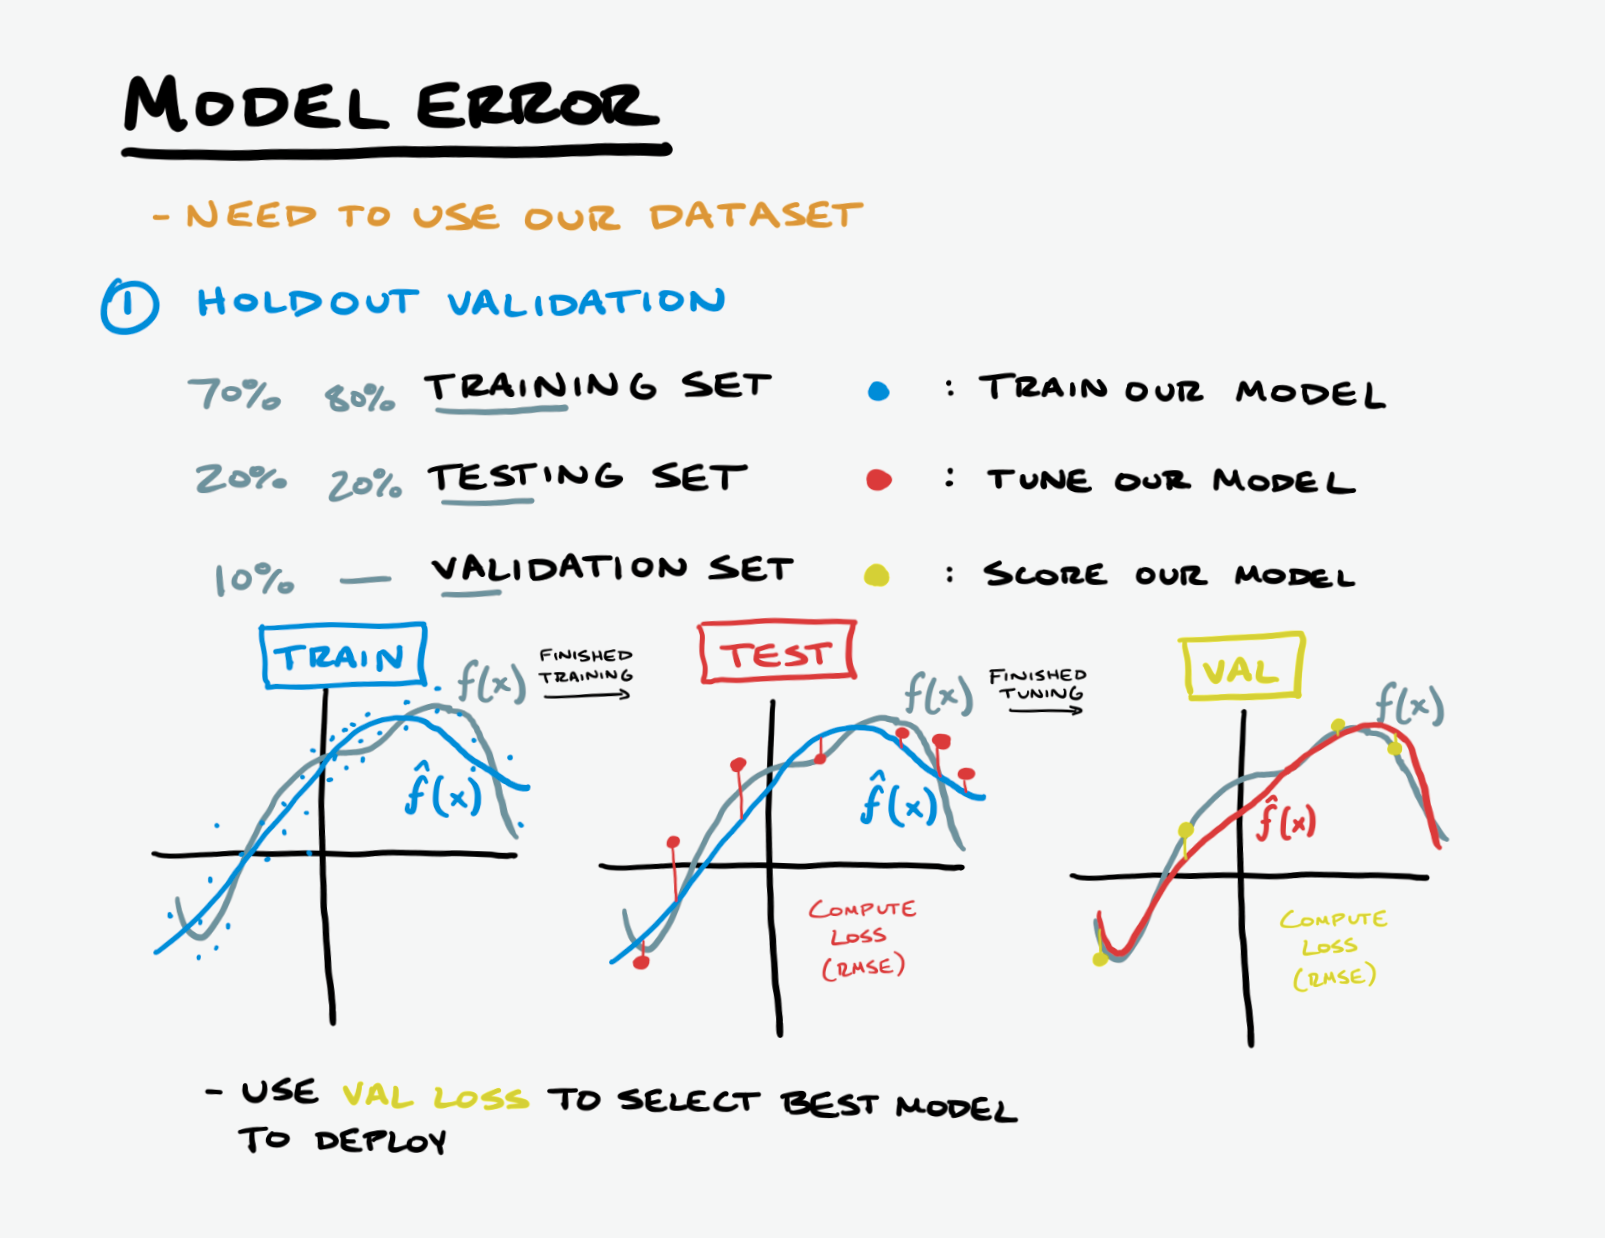 MODEL ERROR
- NEED TO USE OUR DATASET
1 HOLDOUT VALIDATION
70% 80% TRAINING SET : TRAIN OUR MODEL
20% 20% TESTING SET : TUNE OUR MODEL
10% — VALIDATION SET : SCORE OUR MODEL
TRAIN
f(x)
f̂(x)
FINISHED
TRAINING
TEST
f(x)
f̂(x)
COMPUTE
LOSS
(RMSE)
FINISHED
TUNING
VAL
f(x)
f̂(x)
COMPUTE
LOSS
(RMSE)
- USE VAL LOSS TO SELECT BEST MODEL
TO DEPLOY